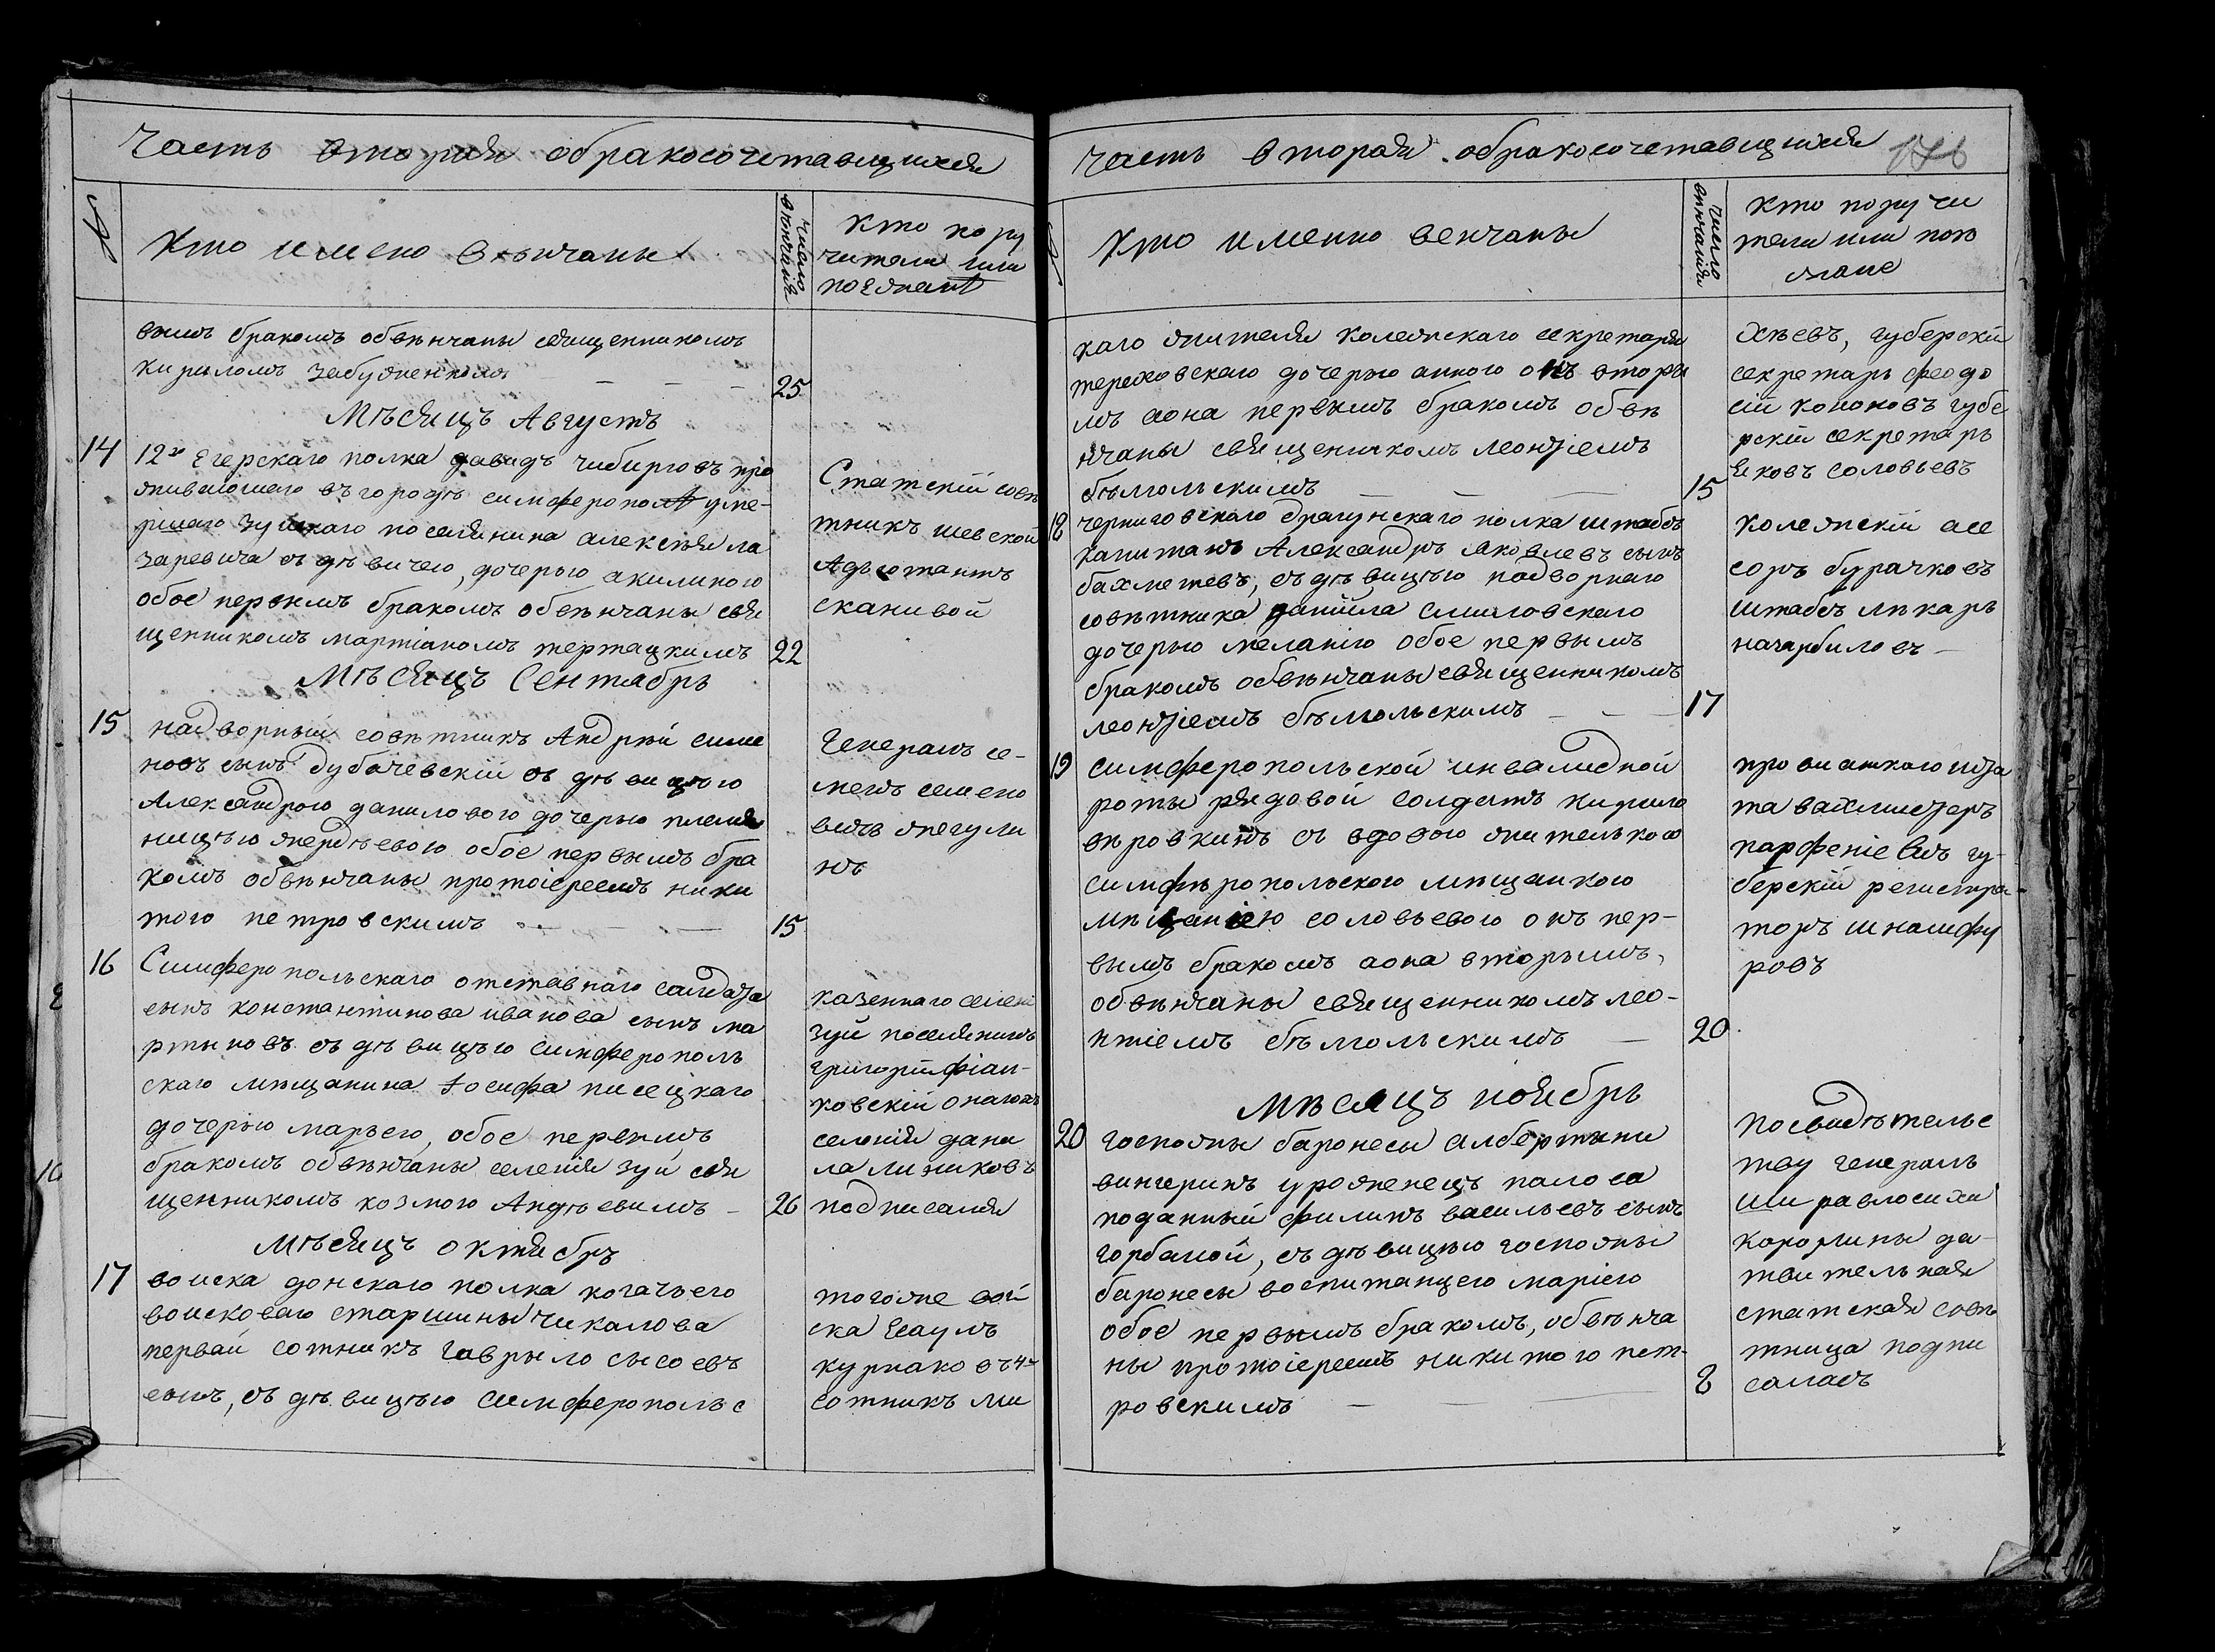 Часть вторая обракосочетавщихся
№
Кто имено вѣнчаны
число вѣнчанія
Кто пору
чители или
поезжанѣ
вымъ бракомъ обвѣнчаны священникомъ
Кирыломъ Забужен
25
Мѣсяцъ Августъ
14
12го Егерскаго полка давидъ чибирговъ про
живающего въ городѣ симферополѣ уме-
ршаго зуйскаго поселянина алексѣя ла
заревича съ дѣвичею, дочерью акилиною
обое первымъ бракомъ обвѣнчаны свя
щенникомъ мартіаномъ тертацкимъ
22
Статскій совѣ
тникъ шевской
Адъютантъ
сканивой
Мѣсяцъ Сентябрь
15
надворный совѣтникъ Андрѣй симе
новъ сынъ Дубачевскій съ дѣвицъю
Александрою даниловою дочерью племя
ницъю жердѣевою обое первымъ бра
комъ обвѣнчаны протоіереемъ ники
тою петровскимъ
15
Генералъ се-
менъ семено
вичъ жегули
нъ
16
Симферопольскаго отставнаго салдата
сынъ константинова иванова сынъ ма
ртыновъ съ дѣвицъю симферополь
скаго мѣщанина Іосифа писецкаго
дочерью марьею, обое первымъ
бракомъ обвѣнчаны селенія зуи свя
щенникомъ козмою Андѣевимъ
26
казеннаго селені
зуй поселянинъ
григорій фіал-
ковскій онагожъ
селенія дани
ла линиковъ
подписался
Мѣсяцъ октябрь
17
воиска донскаго полка когачьего
воисковаго старшины чикалова
первай сотникъ гаврыло сысоевъ
сынъ, съ дѣвицъю симферопольс
тогоже вой
ска Есаулъ
курнаковъ 4й
сотникъ ми
Часть вторая обракосочетавщихся
176
№
Кто именно венчаны
число вѣнчанія
Кто поручи
тели или поѣ
зжане
каго жителя колежскаго секретаря
тереховскаго дочерью анною онъ вторы
мъ аона первымъ бракомъ обвѣ
нчаны священикомъ леонтіемъ
бѣлопольскимъ
15
хѣевъ, губерскій
секретарь феодо
сій кононовъ губе
рскій секретарь
яковъ соловьевъ
18
черниговскаго драгунскаго полка штабсъ
капитанъ Александръ яковлевъ сынъ
бахметевъ, съ дѣвицъю надворнаго
совѣтника даніила смиговскаго
дочерью меланіею обое первымъ
бракомъ обвѣнчаны священникомъ
леонтіемъ бѣлопольскимъ
17
колежскій асе
соръ бурачковъ
штабсъ лѣкарь
19
симферопольской инвалидной
роты рядовой солдатъ кирило
вѣровкинъ съ вдовою жителькою
симфѣропольского мѣщанкою
мѣщанкою соловьевою онъ пер-
вымъ бракомъ аона вторымъ,
обвѣнчаны священникомъ лео-
нтіемъ бѣлопольскимъ
20
провианткого шта
та вахмистеръ
парфеніевичъ гу-
берскій регистра-
торъ шнамфу
ровъ
Мѣсяцъ ноябрь
20
госпожы баронесы албертыни
вингеринъ уроженецъ
поданный филипъ васильевъ сынъ
горбаной, съ дѣвицъю госпожы
баронесы воспитанцего маріею
обое первымъ бракомъ, обвѣнча
ны протоіереемъ никитою пет-
ровскимъ
8
посвидѣтельс
тву генераль
ши
ды-
твительная
статская совѣ
тница подпи
салась